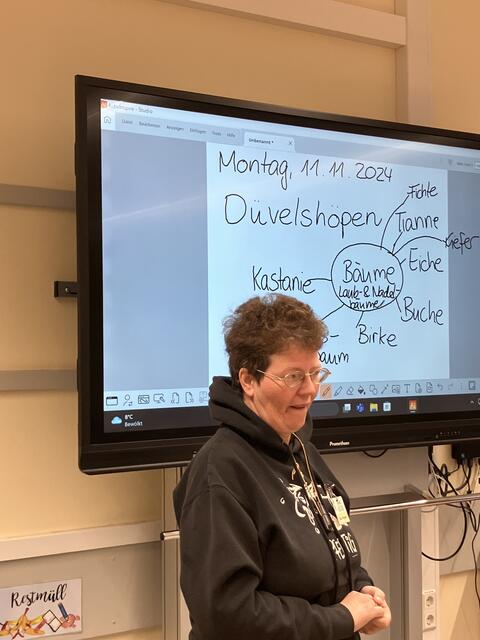 Datei Bearbeiten Anzeigen Einfügen Tools Hilfe
Unbenannt *
Montag, 11.11.2024
Düvelshöpen
Fichte
Tianne
Kiefer
Eiche
Kastanie
Bäume
Laub- & Nadel
bäume
Buche
Birke
aum
8°C
Bewölkt
Promethean
Restmüll